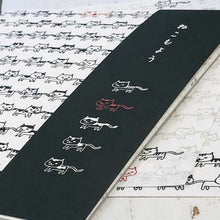 ねこもよう